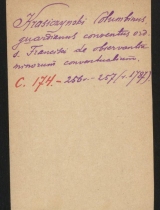 Krasiczynski Columbinus
guardianus conventus ord.
s. Francisci de observantia
minorum conventualium.
C. 174. - 256v. - 257 /. 1747/